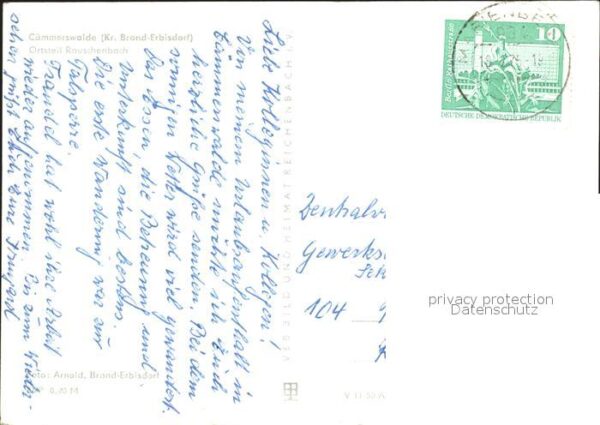 Cämmerswalde (Kr. Brand-Erbisdorf)
Ortsteil Rauschenbach
Liebe Kolleginnen u. Kollegen!
Von meinem Urlaubsaufenthalt in
Cämmerswalde möchte ich Euch
herzliche Grüße senden. Bei dem
sonnigen Wetter wird viel gewandert.
Das Essen, die Betreuung und
Unterkunft sind bestens.
Die erste Wanderung war zur
Talsperre.
hat wohl ihre Arbeit
wieder aufgenommen. Bis zum Wieder-
sehen grüßt Euch Eure
Foto: Arnold, Brand-Erbisdorf
0,20 M
VEB BILD UND HEIMAT REICHENBACH i. V.
V 11 50 A
10
Berlin
DEUTSCHE DEMOKRATISCHE REPUBLIK
Zentralv
Gewerks
104
privacy protection
Datenschutz